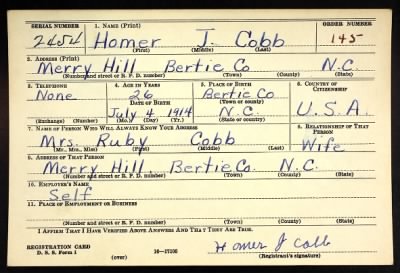 SERIAL NUMBER 1. NAME (Print) ORDER NUMBER
2454 Homer J. Cobb 145
(First) (Middle) (Last)
2. ADDRESS (Print)
Merry Hill Bertie Co N.C.
(Number and street or R. F. D. number) (Town) (County) (State)
3. TELEPHONE 4. AGE IN YEARS 5. PLACE OF BIRTH 6. COUNTRY OF CITIZENSHIP
None 26 Bertie Co
DATE OF BIRTH (Town or county)
July 4 1914 N.C. U.S.A.
(Exchange) (Number) (Mo.) (Day) (Yr.) (State or country)
7. NAME OF PERSON WHO WILL ALWAYS KNOW YOUR ADDRESS 8. RELATIONSHIP OF THAT PERSON
Mrs. Ruby Cobb Wife
(Mr., Mrs., Miss) (First) (Middle) (Last)
9. ADDRESS OF THAT PERSON
Merry Hill, Bertie Co. N.C.
(Number and street or R. F. D. number) (Town) (County) (State)
10. EMPLOYER'S NAME
Self
11. PLACE OF EMPLOYMENT OR BUSINESS
(Number and street or R. F. D. number) (Town) (County) (State)
I AFFIRM THAT I HAVE VERIFIED ABOVE ANSWERS AND THAT THEY ARE TRUE.
REGISTRATION CARD
D. S. S. Form 1 (over) 16—17105
Homer J Cobb
(Registrant's signature)